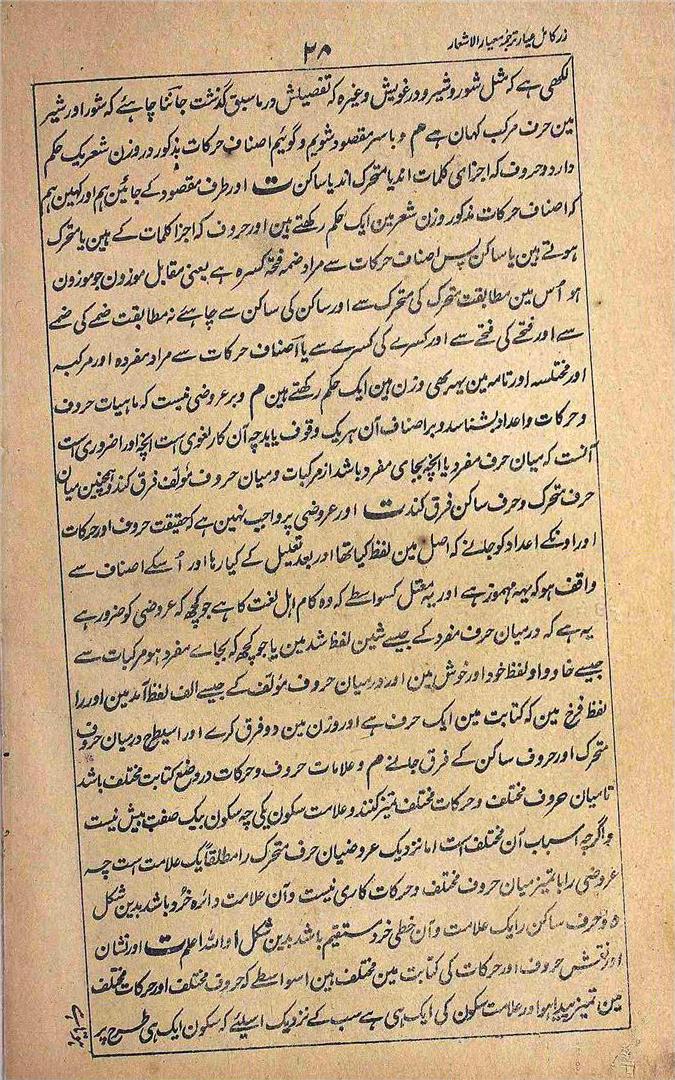 زر کامل عیار ترجمہ معیار الاشعار
۲۸
لکھی ہے کہ مثل شور و شیر و درغویش وغیرہ کہ تفصیلش در ماسبق گذشت جاننا چاہئے کہ شور اور شیر
مین حرف مرکب کہان ہے هم و باسر مقصود شویم و گوئیم اصناف حرکات مذکور در وزن شعر یک حکم
دارد و حروف کہ اجزای کلمات اند یا متحرک اند یا ساکن ت اور طرف مقصود کے جائین ہم اور کہین ہم
کہ اصناف حرکات مذکور وزن شعر مین ایک حکم رکھتے ہین اور حروف کہ اجزا کلمات کے ہین یا متحرک
ہوتے ہین یا ساکن پس اصناف حرکات سے مراد ضمہ فتحہ کسرہ ہے یعنی مقابل موزون جو موزون
ہو اُس مین مطابقت متحرک کی متحرک سے اور ساکن کی ساکن سے چاہئے نہ مطابقت ضمے کی ضمے
سے اور فتحے کی فتحے سے اور کسرے کی کسرے سے یا اصناف حرکات سے مراد مفردہ اور مرکبہ
اور مختلسہ اور تامہ مین یہہ بھی وزن مین ایک حکم رکھتے ہین هم و بر عروضی نیست کہ ماہیات حروف
و حرکات و اعداد بشناسد و بر اصناف آن ہر یک وقوف یابد چہ آن کار لغوی است انچہ اورا ضروری است
آنست کہ میان حرف مفرد یا انچہ بجای مفرد باشد از مرکبات و میان حروف مؤلف فرق کند و ہمچنین میان
حرف متحرک و حرف ساکن فرق کند ت اور عروضی پر واجب نہین ہے کہ حقیقت حروف اور حرکات
اور اونکے اعداد کو جانے کہ اصل مین لفظ کیا تھا اور بعد تعلیل کے کیا رہا اور اُسکے اصناف سے
واقف ہو کہ یہہ مہموز ہے اور یہ معتل کسواسطے کہ وہ کام اہل لغت کا ہے جو کچھ کہ عروضی کو ضرور ہے
یہ ہے کہ درمیان حرف مفرد کے جیسے شین لفظ شد مین یا جو کچھ کہ بجاے مفرد ہو مرکبات سے
جیسے خا و واو لفظ خود اور خوش مین اور درمیان حروف مؤلف کے جیسے الف لفظ آمد مین اور را
لفظ فرخ مین کہ کتابت مین ایک حرف ہے اور وزن مین دو فرق کرے اور اسیطرح درمیان حروف
متحرک اور حروف ساکن کے فرق جانے هم و علامات حروف و حرکات در وضع کتابت مختلف باشد
تا میان حروف مختلف و حرکات مختلف تمیز کنند و علامت سکون یکی چہ سکون یک صفت بیش نیست
و اگرچہ اسباب آن مختلف است اما نزدیک عروضیان حرف متحرک را مطلقاً یک علامت است چہ
عروضی را با تمیز میان حروف مختلف و حرکات کاری نیست و آن علامت دائرہ خُرد باشد بدین شکل
ہ و حرف ساکن را یک علامت و آن خطی خرد مستقیم باشد بدین شکل ا واللہ اعلم ت اور نشان
اور نقش حروف اور حرکات کی کتابت مین مختلف ہین اسواسطے کہ حروف مختلف اور حرکات مختلف
مین تمیز پیدا ہو اور علامت سکون کی ایک ہی ہے سب کے نزدیک اسلئے کہ سکون ایک ہی طرح پر